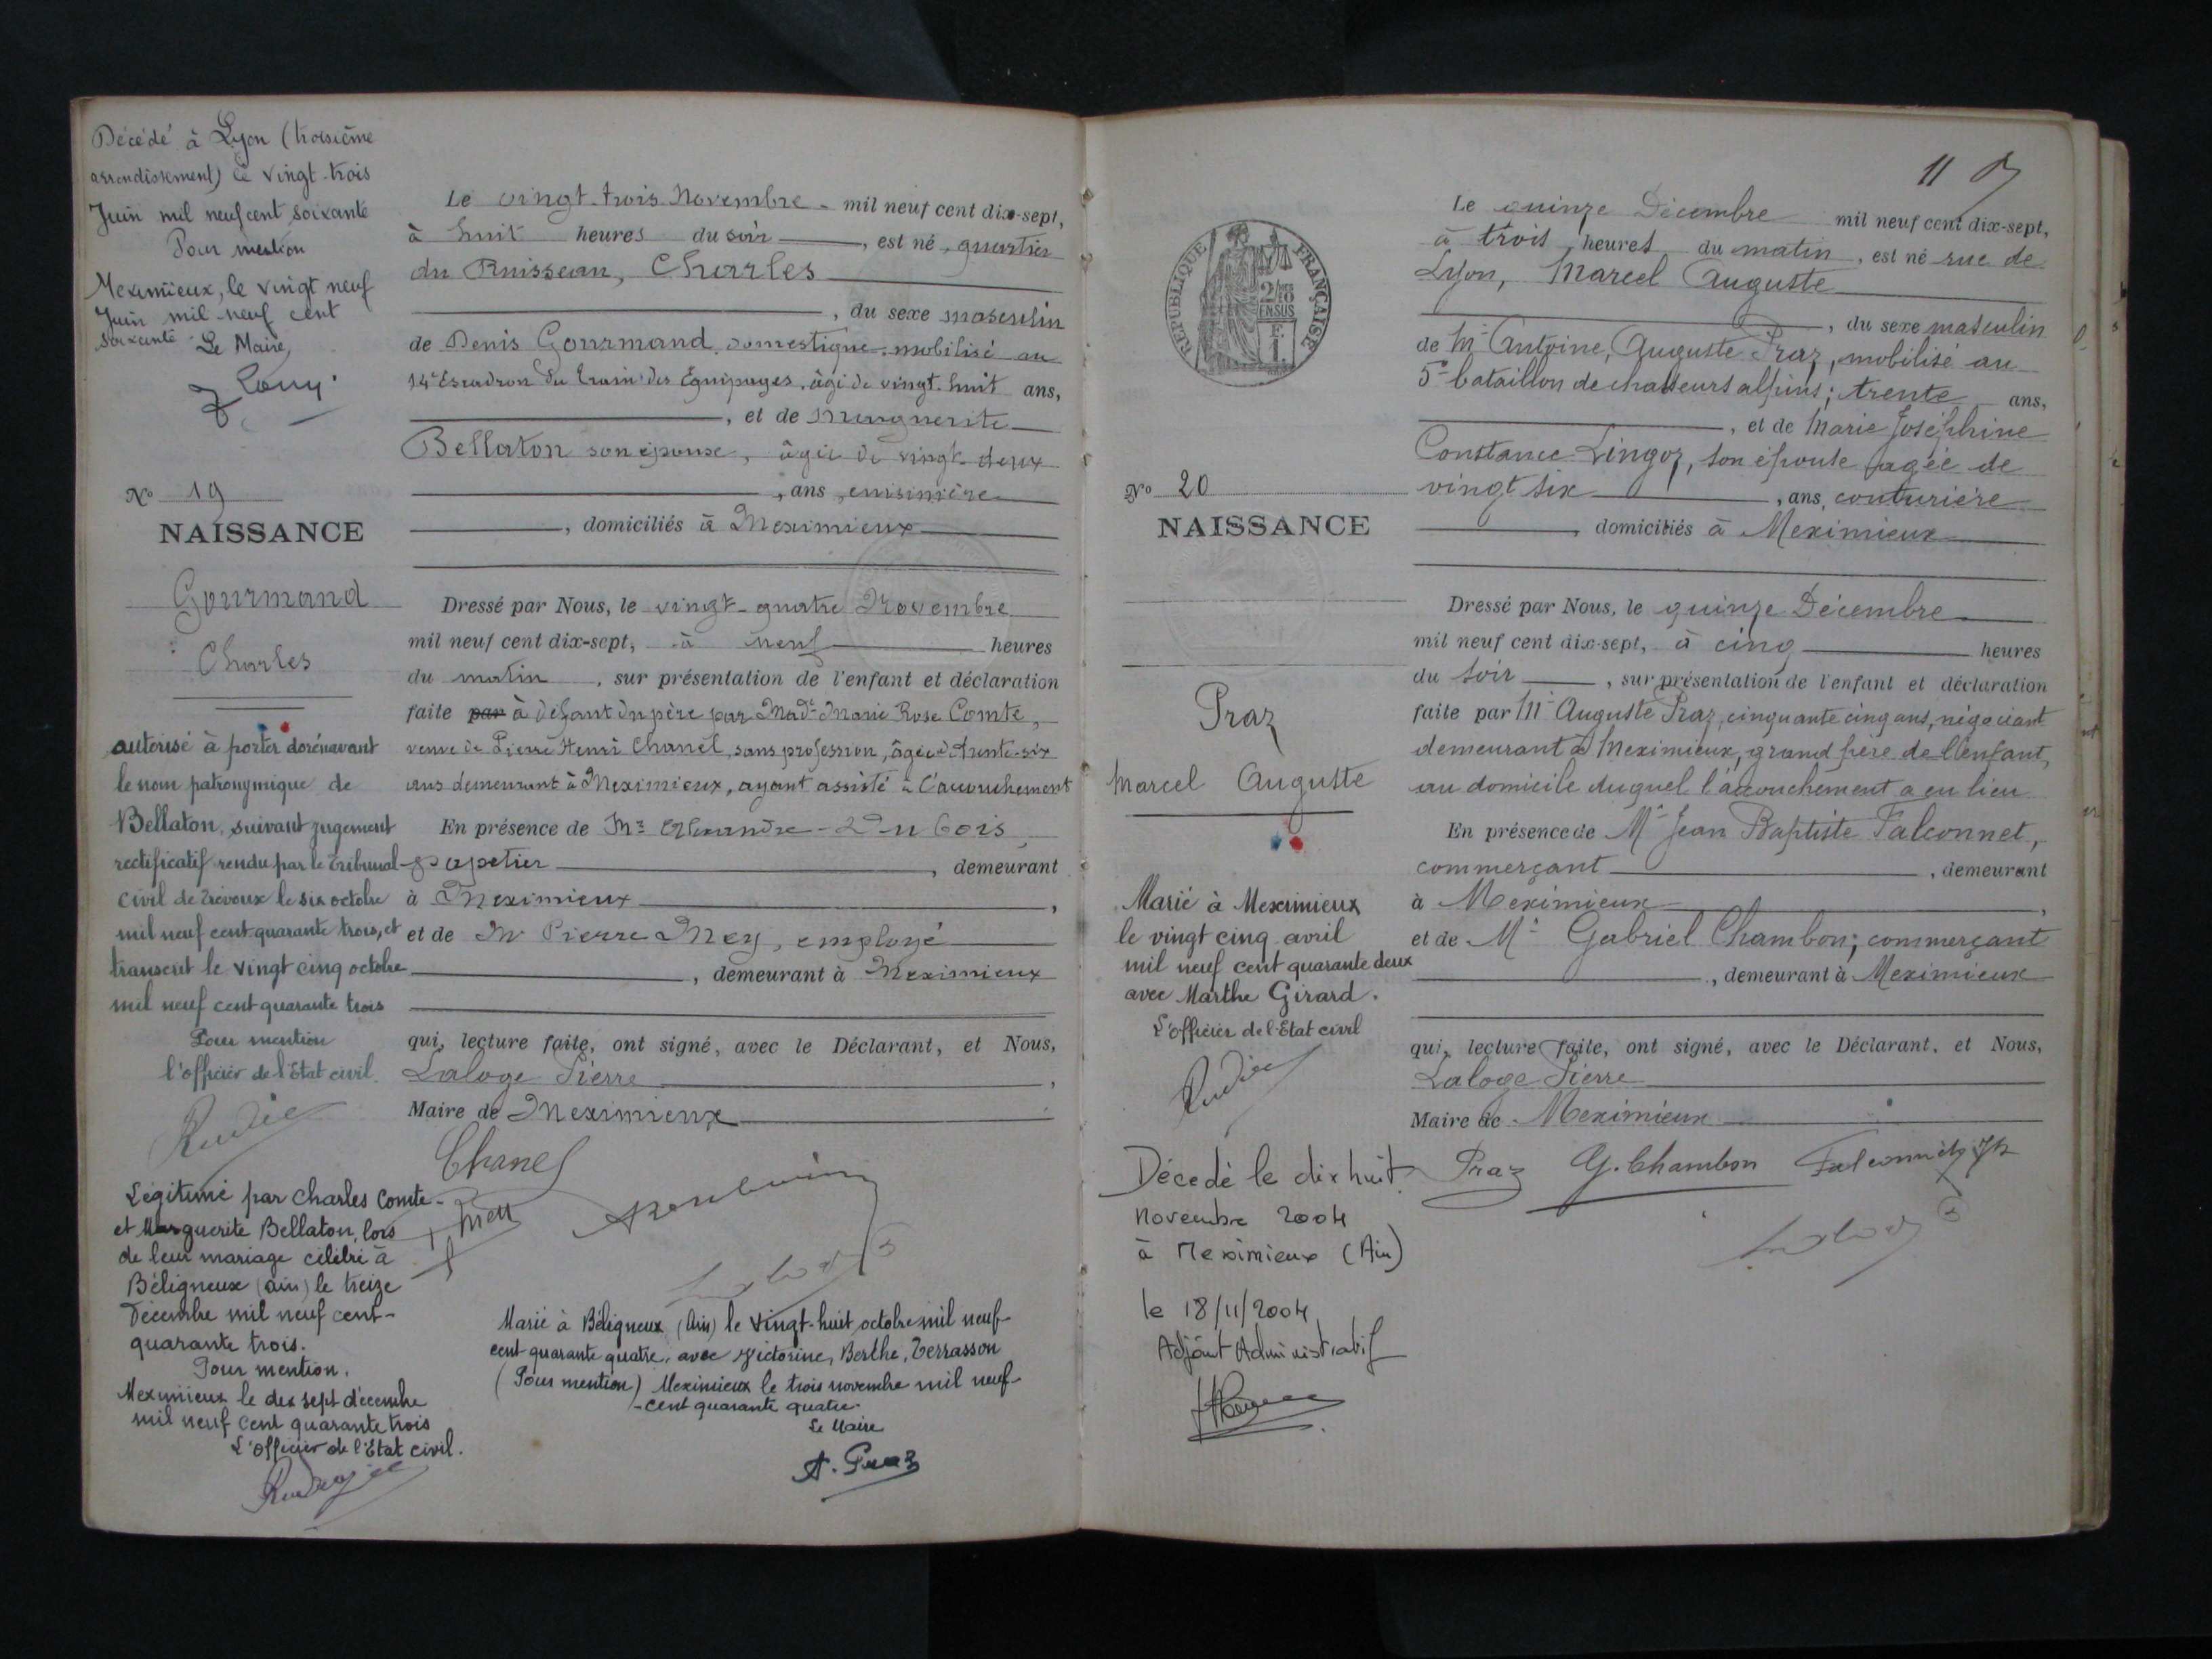 Décédé à Lyon (troisième
arrondissement) le vingt-trois
Juin mil neuf cent soixante
Pour mention
Meximieux, le vingt neuf
Juin mil neuf cent
soixante Le Maire,
N° 19
NAISSANCE
Gourmand
Charles
autorisé à porter dorénavant
le nom patronymique de
Bellaton, suivant jugement
rectificatif rendu par le Tribunal
civil de Trévoux le six octobre
mil neuf cent quarante trois, et
transcrit le vingt cinq octobre
mil neuf cent quarante trois
Pour mention
l'officier de l'Etat civil.
Légitimé par Charles Comte
et Marguerite Bellaton, lors
de leur mariage célébré à
Béligneux (ain) le treize
Décembre mil neuf cent-
quarante trois.
Pour mention.
Meximieux le dix sept décembre
mil neuf cent quarante trois
L'officier de l'Etat civil.
Le vingt-trois Novembre - mil neuf cent dix-sept,
à huit heures du soir, est né, quartier
du Ruisseau, Charles
, du sexe masculin
de Denis Gourmand, domestique, mobilisé au
14e Escadron du train des Équipages, âgé de vingt-huit ans,
, et de Marguerite
Bellaton son épouse, âgée de vingt-deux
, ans, cuisinière
, domiciliés à Meximieux
Dressé par Nous, le vingt-quatre Novembre
mil neuf cent dix-sept, à neuf heures
du matin, sur présentation de l'enfant et déclaration
faite par à défaut du père par Made Marie Rose Comte,
veuve de Pierre Henri Chanel, sans profession, âgée de trente-six
ans demeurant à Meximieux, ayant assisté à l'accouchement
En présence de Mr Alexandre Dubois
papetier, demeurant
à Meximieux,
et de Mr Pierre Mey, employé
, demeurant à Meximieux
qui, lecture faite, ont signé, avec le Déclarant, et Nous,
Laloge Pierre,
Maire de Meximieux
Chanel
Mey
Marié à Béligneux (Ain) le vingt-huit octobre mil neuf-
cent quarante quatre, avec Victorine, Berthe, Terrasson
(Pour mention) Meximieux le trois novembre mil neuf-
-cent quarante quatre.
Le Maire
A. Praz
11
RÉPUBLIQUE FRANÇAISE
2/10
EN SUS
N° 20
NAISSANCE
Praz
Marcel Auguste
Marié à Meximieux
le vingt cinq avril
mil neuf cent quarante deux
avec Marthe Girard.
L'officier de l'Etat civil
Décédé le dix huit
novembre 2004
à Meximieux (Ain)
le 18/11/2004
Adjoint Administratif
Le quinze Décembre mil neuf cent dix-sept,
à trois heures du matin, est né rue de
Lyon, Marcel Auguste
, du sexe masculin
de Mr Antoine, Auguste Praz, mobilisé au
5e bataillon de chasseurs alpins; trente ans,
, et de Marie Joséphine
Constance Lingoz, son épouse agée de
vingt six, ans, couturière
, domiciliés à Meximieux
Dressé par Nous, le quinze Décembre
mil neuf cent dix-sept, à cinq heures
du soir, sur présentation de l'enfant et déclaration
faite par Mr Auguste Praz, cinquante cinq ans, négociant
demeurant à Meximieux, grand père de l'enfant,
au domicile duquel l'accouchement a eu lieu
En présence de Mr Jean Baptiste Falconnet,
commerçant, demeurant
à Meximieux,
et de Mr Gabriel Chambon; commerçant
, demeurant à Meximieux
qui, lecture faite, ont signé, avec le Déclarant, et Nous,
Laloge Pierre
Maire de Meximieux
Praz G. Chambon Falconnet